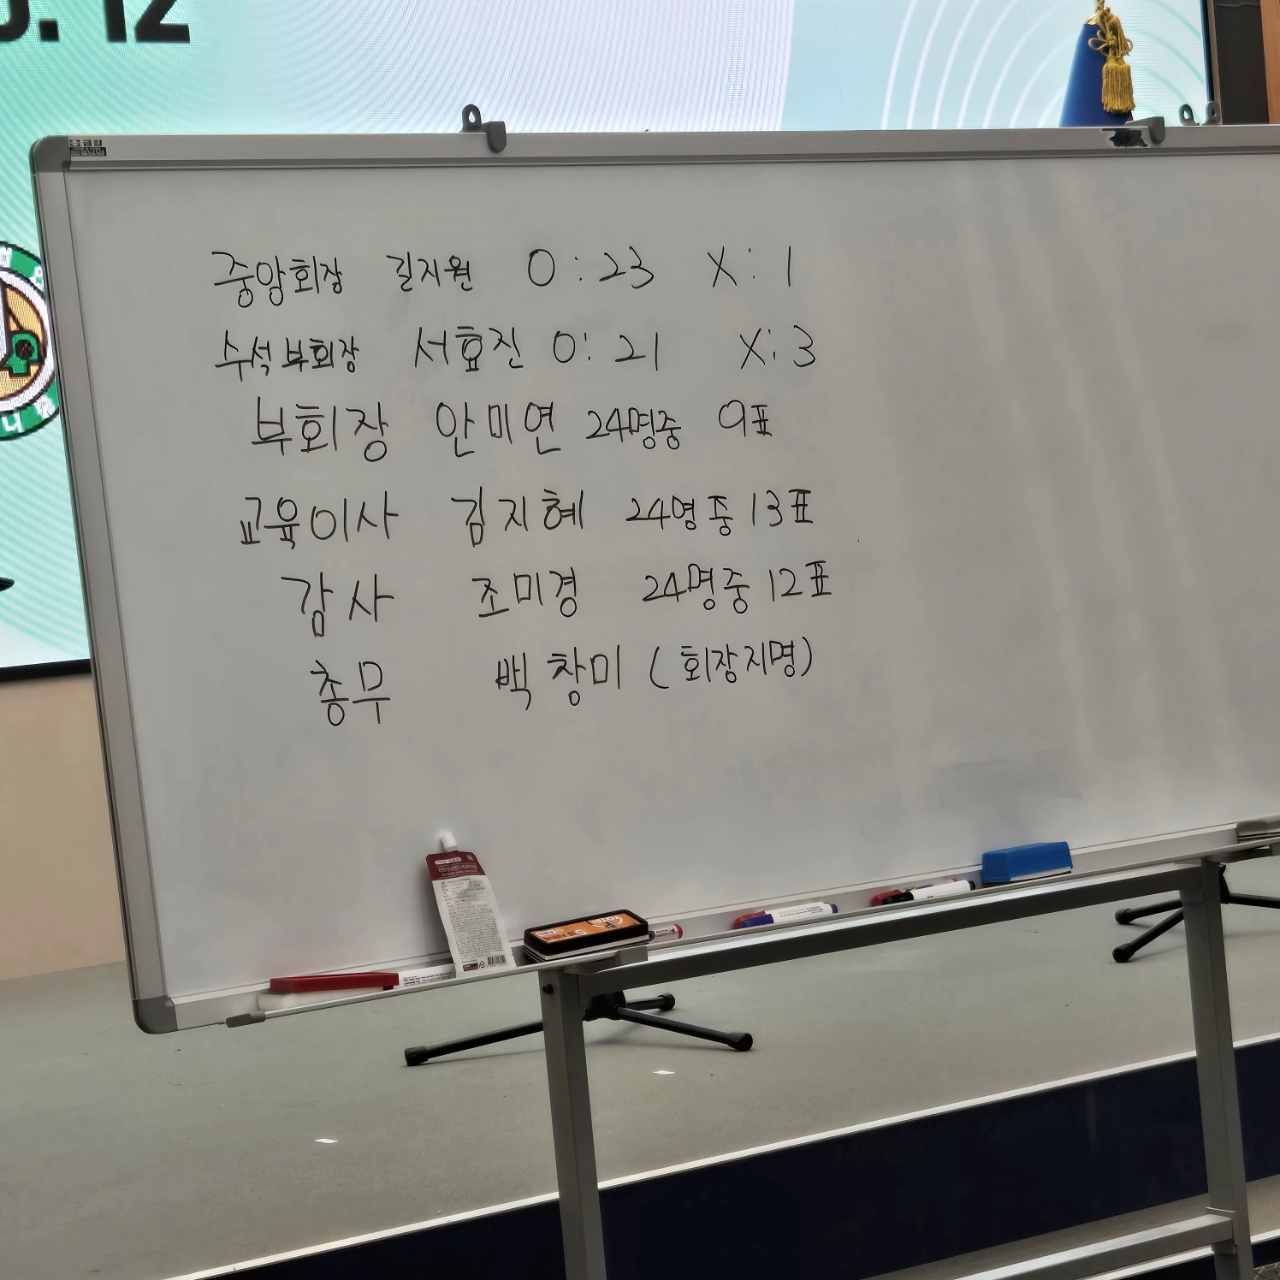 12
중앙회장 길지원 O : 23 X : 1
수석부회장 서효진 O : 21 X : 3
부회장 안미연 24명중 9표
교육이사 김지혜 24명중 13표
감사 조미경 24명중 12표
총무 백창미 (회장지명)